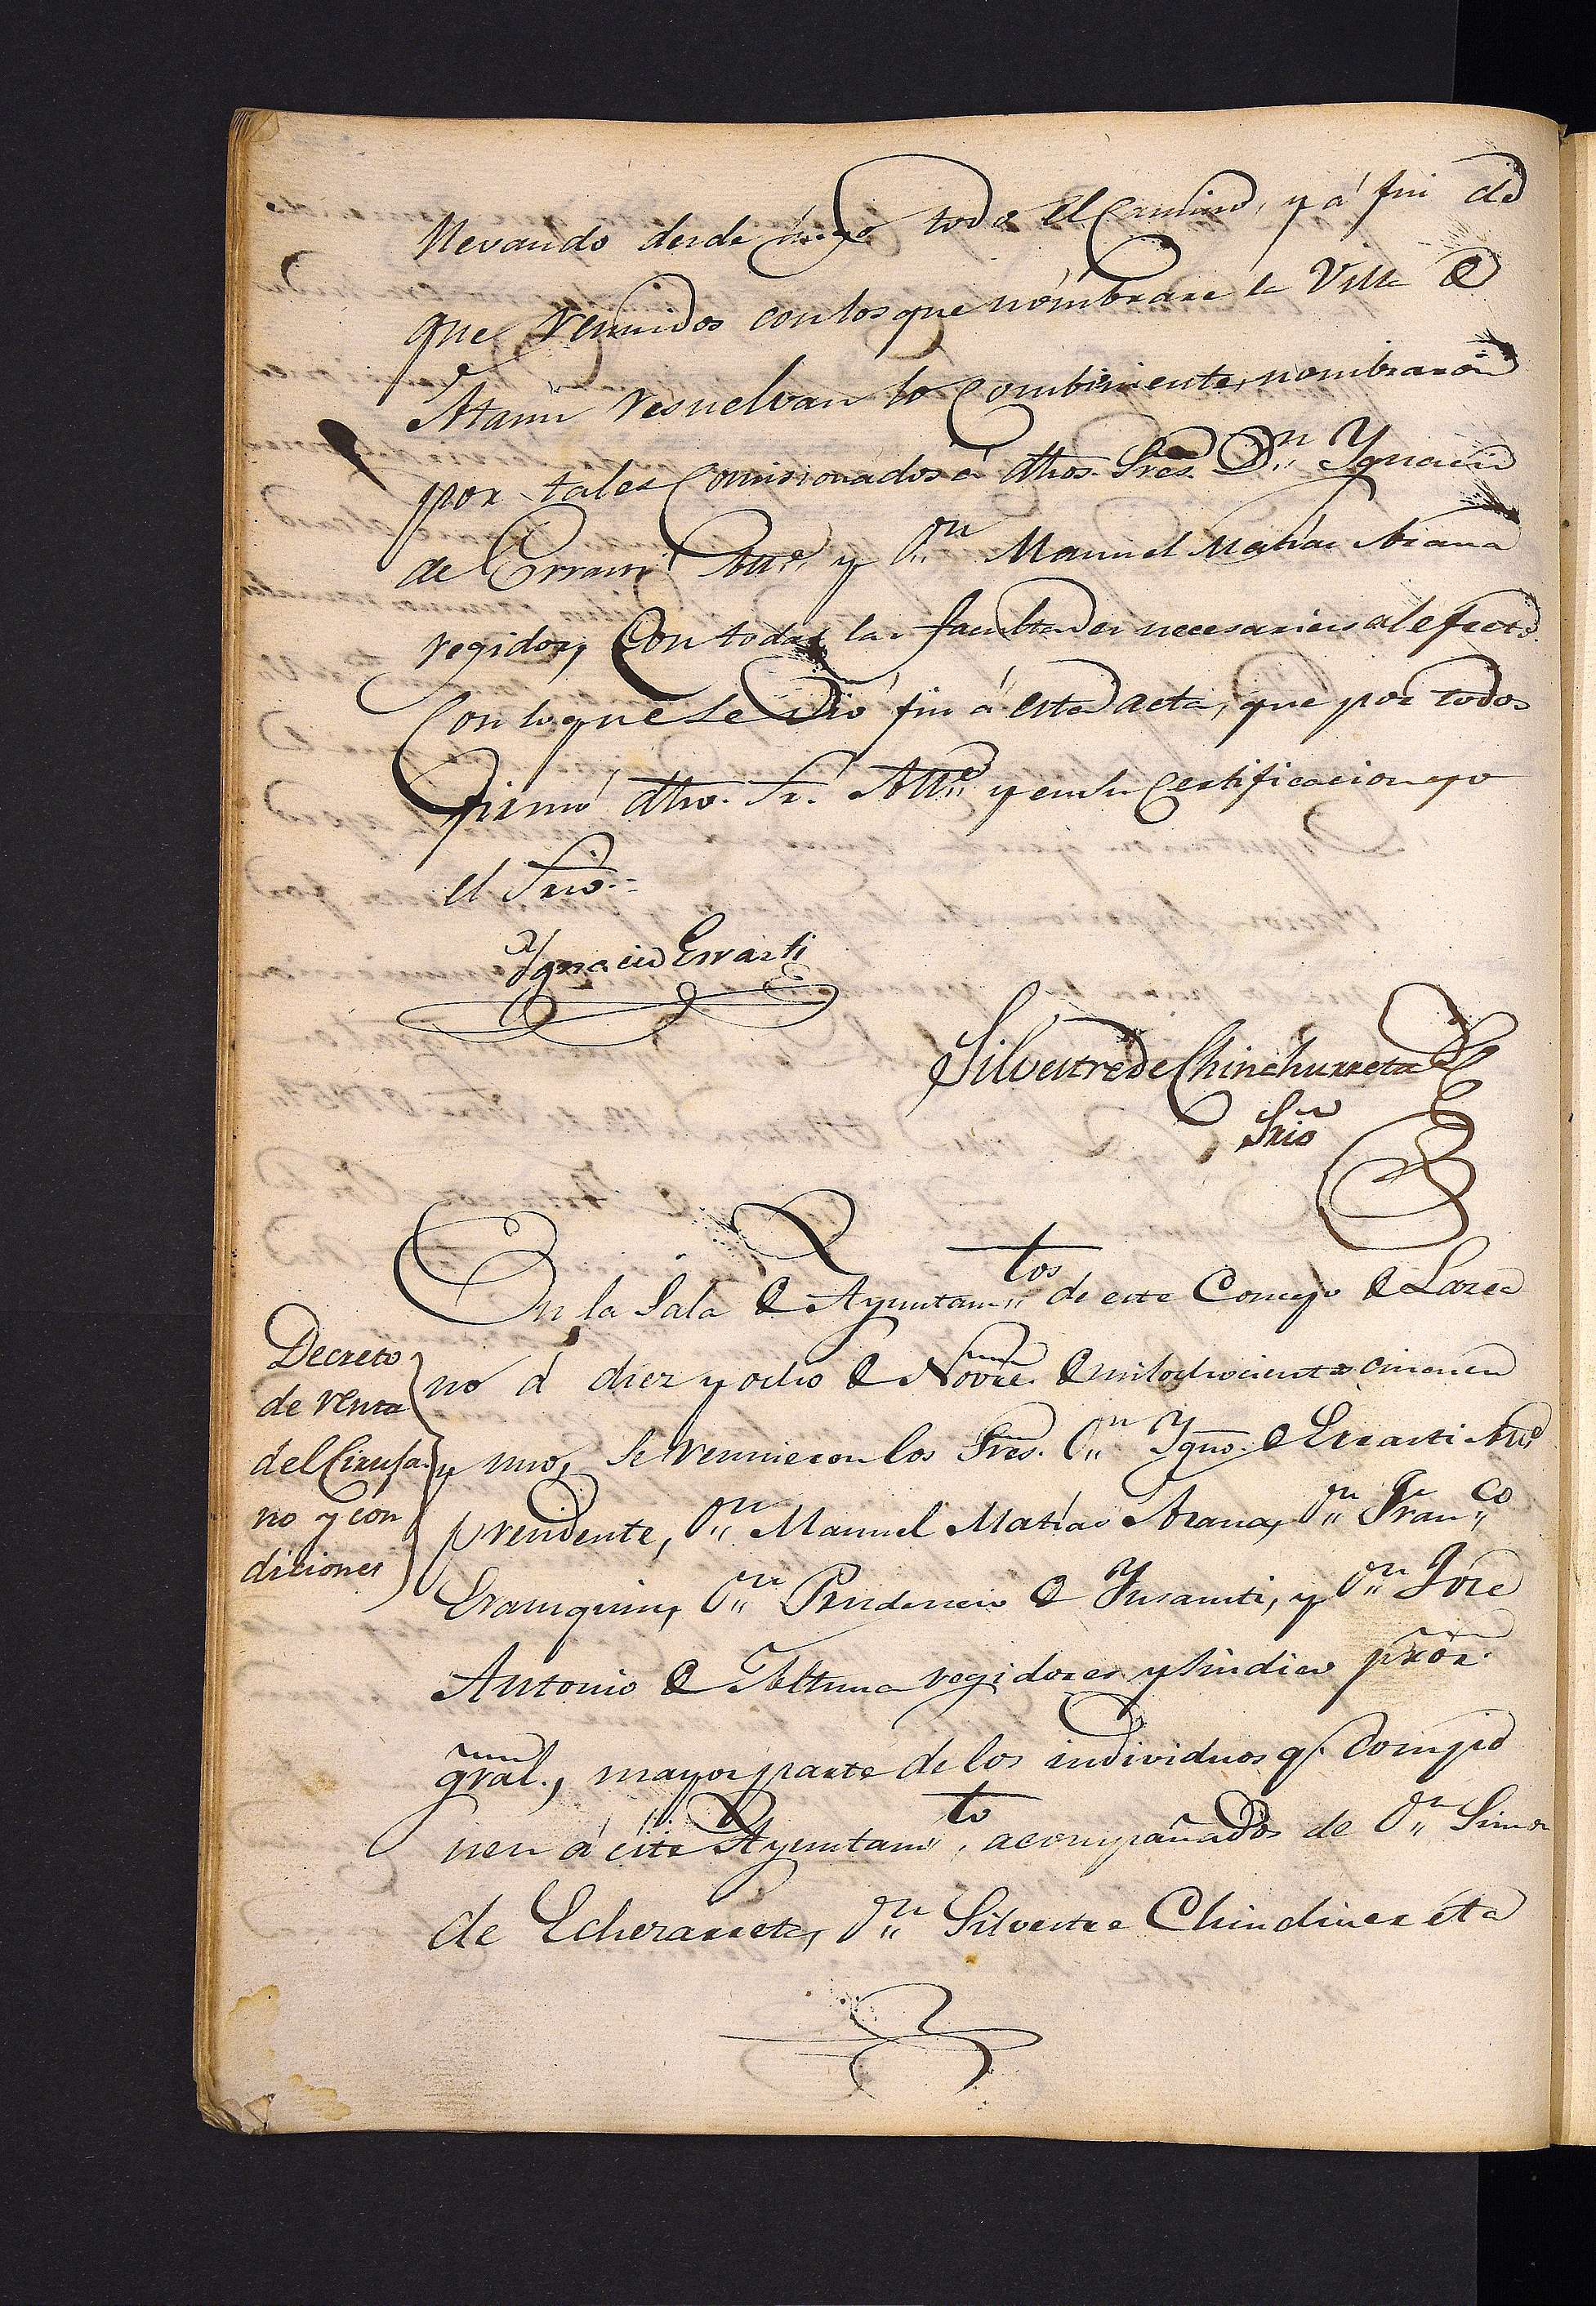 llevando desde luego todo el Camino, y á fin de
que reunidos con los que nómbrare la Villa de
Ataun resuelvan lo Combiniente, nombraron
por tales Comisionados á dhos. Sres. Dn. Ygnacio
de Errasti Alle. y Dn. Manuel Matías Arana
regidor, Con todas las facultades necesarias al efecto.
Con lo que se dió fin á esta acta, que por todos
firmó dho. Sr. Alle. y en su Certificacion yo
el Srio.=
Ygnacio Errasti
Silvestre de Chinchurreta
Srio
En la Sala de Ayuntamtos de este Concejo de Lazca
Decreto
de renta
del Ciruja
no y con
diciones
no á diez y ocho de Novre. de mil ochocientos cincuen
y uno, se reunieron los Sres. Dn. Ygno. de Errasti Alle
presidente, Dn. Manuel Matías Arana, Dn. Franco
Erauzquin, Dn. Prudencio de Insausti, y Dn. José
Antonio de Altuna regidores y síndico prór.
gral., mayor parte de los individuos q. compo
nen á este Ayuntamto, acompañados de Dn. Simon
de Echezarreta, Dn. Silvestre Chinchurréta